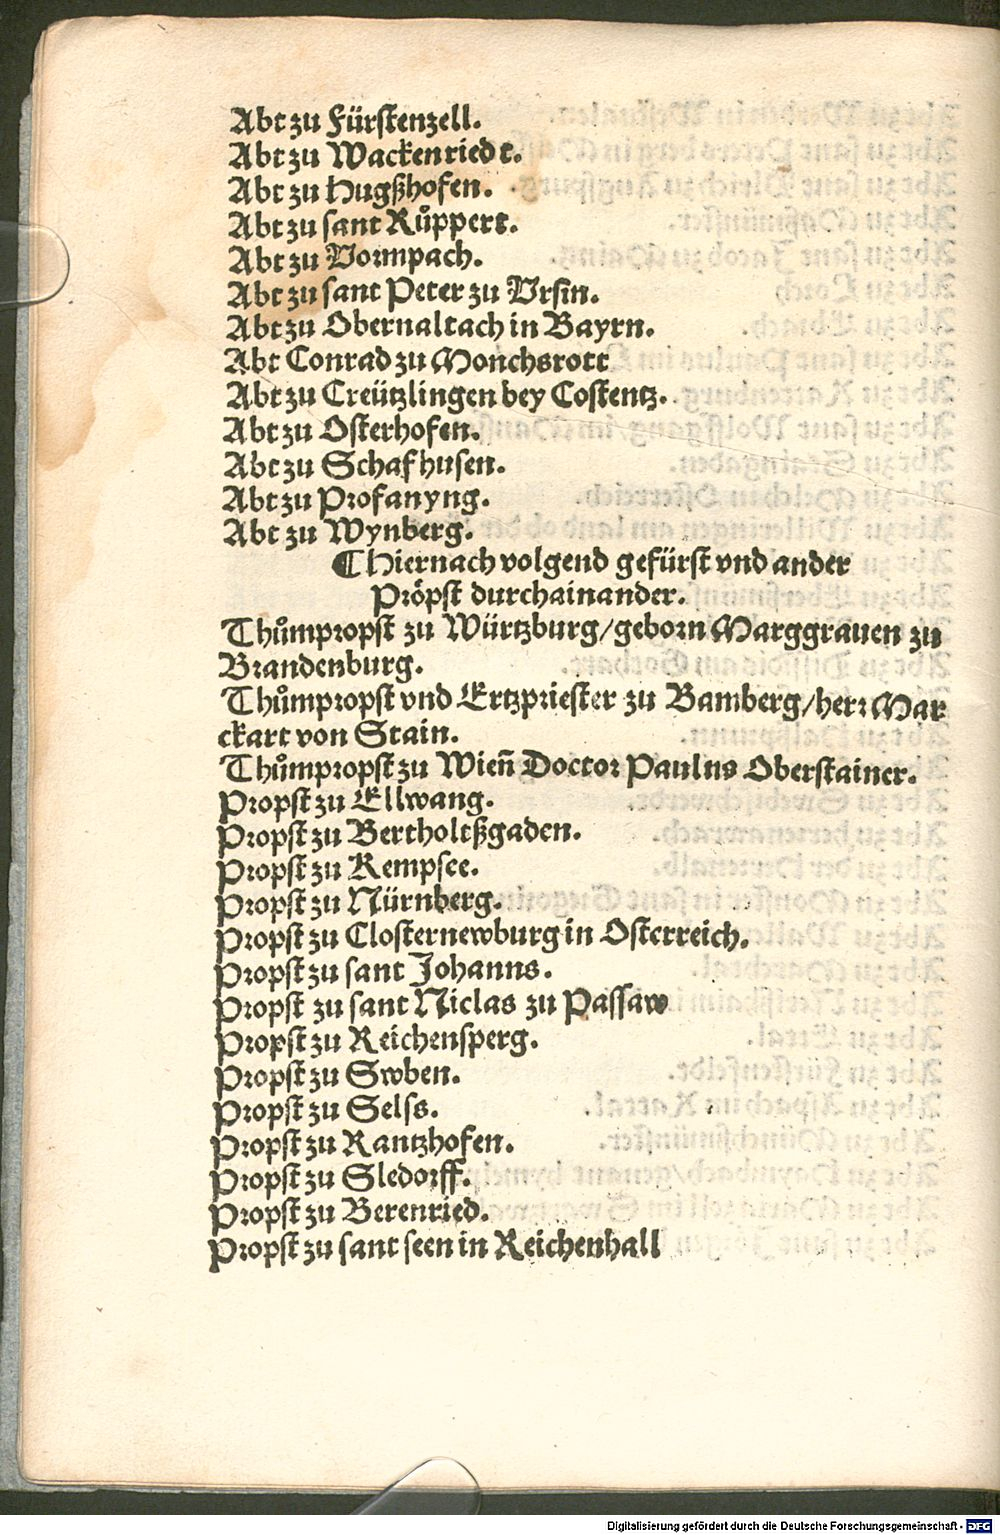 Abt zu Fürstenzell.
Abt zu Wackenriedt.
Abt zu Hugßhofen.
Abt zu sant Růppert.
Abt zu Vormpach.
Abt zu sant Peter zu Vrsin.
Abt zu Obernaltach in Bayrn.
Abt Conrad zu Monchsrott
Abt zu Creützlingen bey Costentz.
Abt zu Osterhofen.
Abt zu Schafhusen.
Abt zu Profanyng.
Abt zu Wynberg.
¶ Hiernach volgend gefürst vnd ander
Pröpst durchainander.
Thůmpropst zu Würtzburg/geborn Marggrauen zu
Brandenburg.
Thůmpropst vnd Ertzpriester zu Bamberg/herr Mar
ckart von Stain.
Thůmpropst zu Wien̄ Doctor Paulus Oberstainer.
Propst zu Ellwang.
Propst zu Bertholtßgaden.
Propst zu Kempsee.
Propst zu Nürnberg.
Propst zu Closternewburg in Osterreich.
Propst zu sant Johanns.
Propst zu sant Niclas zu Passaw
Propst zu Reichensperg.
Propst zu Swben.
Propst zu Selss.
Propst zu Rantzhofen.
Propst zu Sledorff.
Propst zu Berenried.
Propst zu sant seen in Reichenhall
Digitalisierung gefördert durch die Deutsche Forschungsgemeinschaft - DFG